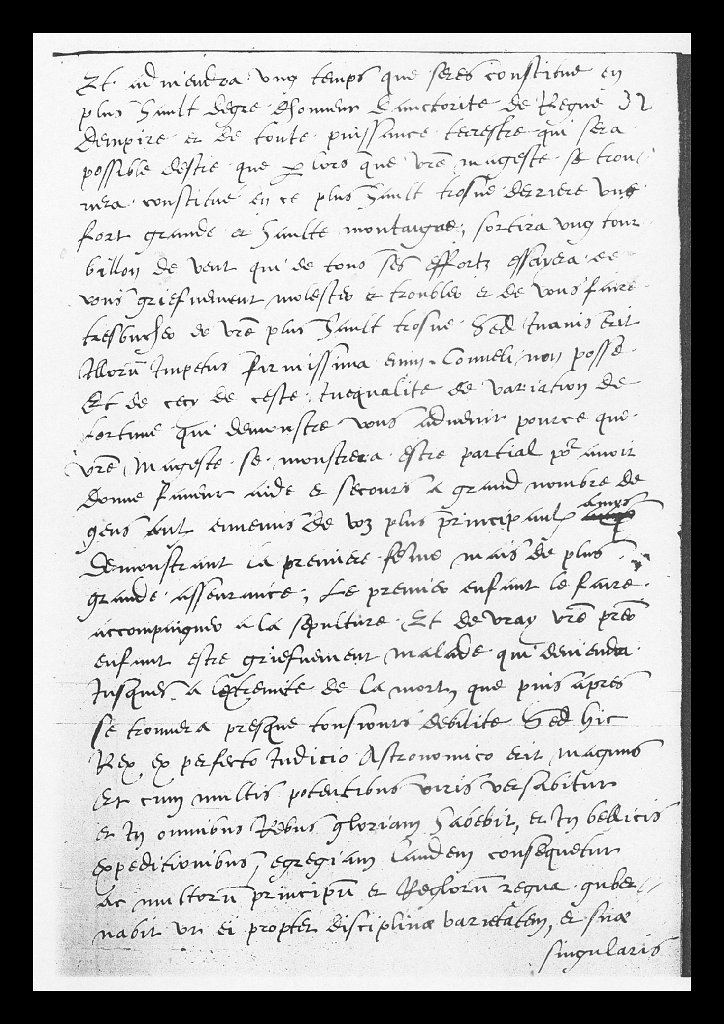 Et adviendra ung temps que seres constitue en
plus hault degre dhonneur dauctorite de Regne
dempire et de toute puissance terrestre qui sera
possible destre que lors que vre mageste se trou
vera constitue en ce plus hault trosne derriere ung
fort grande et haulte montaigne, sortira ung tour
billon de vent qui de tous ses effortz essayera de
vous griefvement molester et troubler et de vous faire
tresbucher de vre plus hault trosne Sed Inanis erit
Illorum Impetus firmissima enim Convelli non posse
Et de cecy de ceste Inequalite de variation de
fortune qui demonstre vous advenir pource que
vre Mageste se monstrera estre partial por avoir
donne faveur aide et secours a grand nombre de
gens ennemis de voz plus principaulx amys
demonstrant la premiere mais de plus
grande asseurance, Le premier enfant le faire
accompaigner a la sepulture Et de vray vre
enfant estre griefvement malade qui deviendra
Jusques a lextremite de la mort, que puis apres
se trouvera presque tousiours debilite Sed hic
Rex ex perfecto Judicio Astronomico erit magnus
Et cum multis potentibus viris versabitur
et In omnibus Rebus gloriam habebit, et In bellicis
expeditionibus, egregiam laudem consequetur
ac multorum principum et Regiorum regna guber
nabit ut ei propter disciplinae varietatem, et suae
singularis